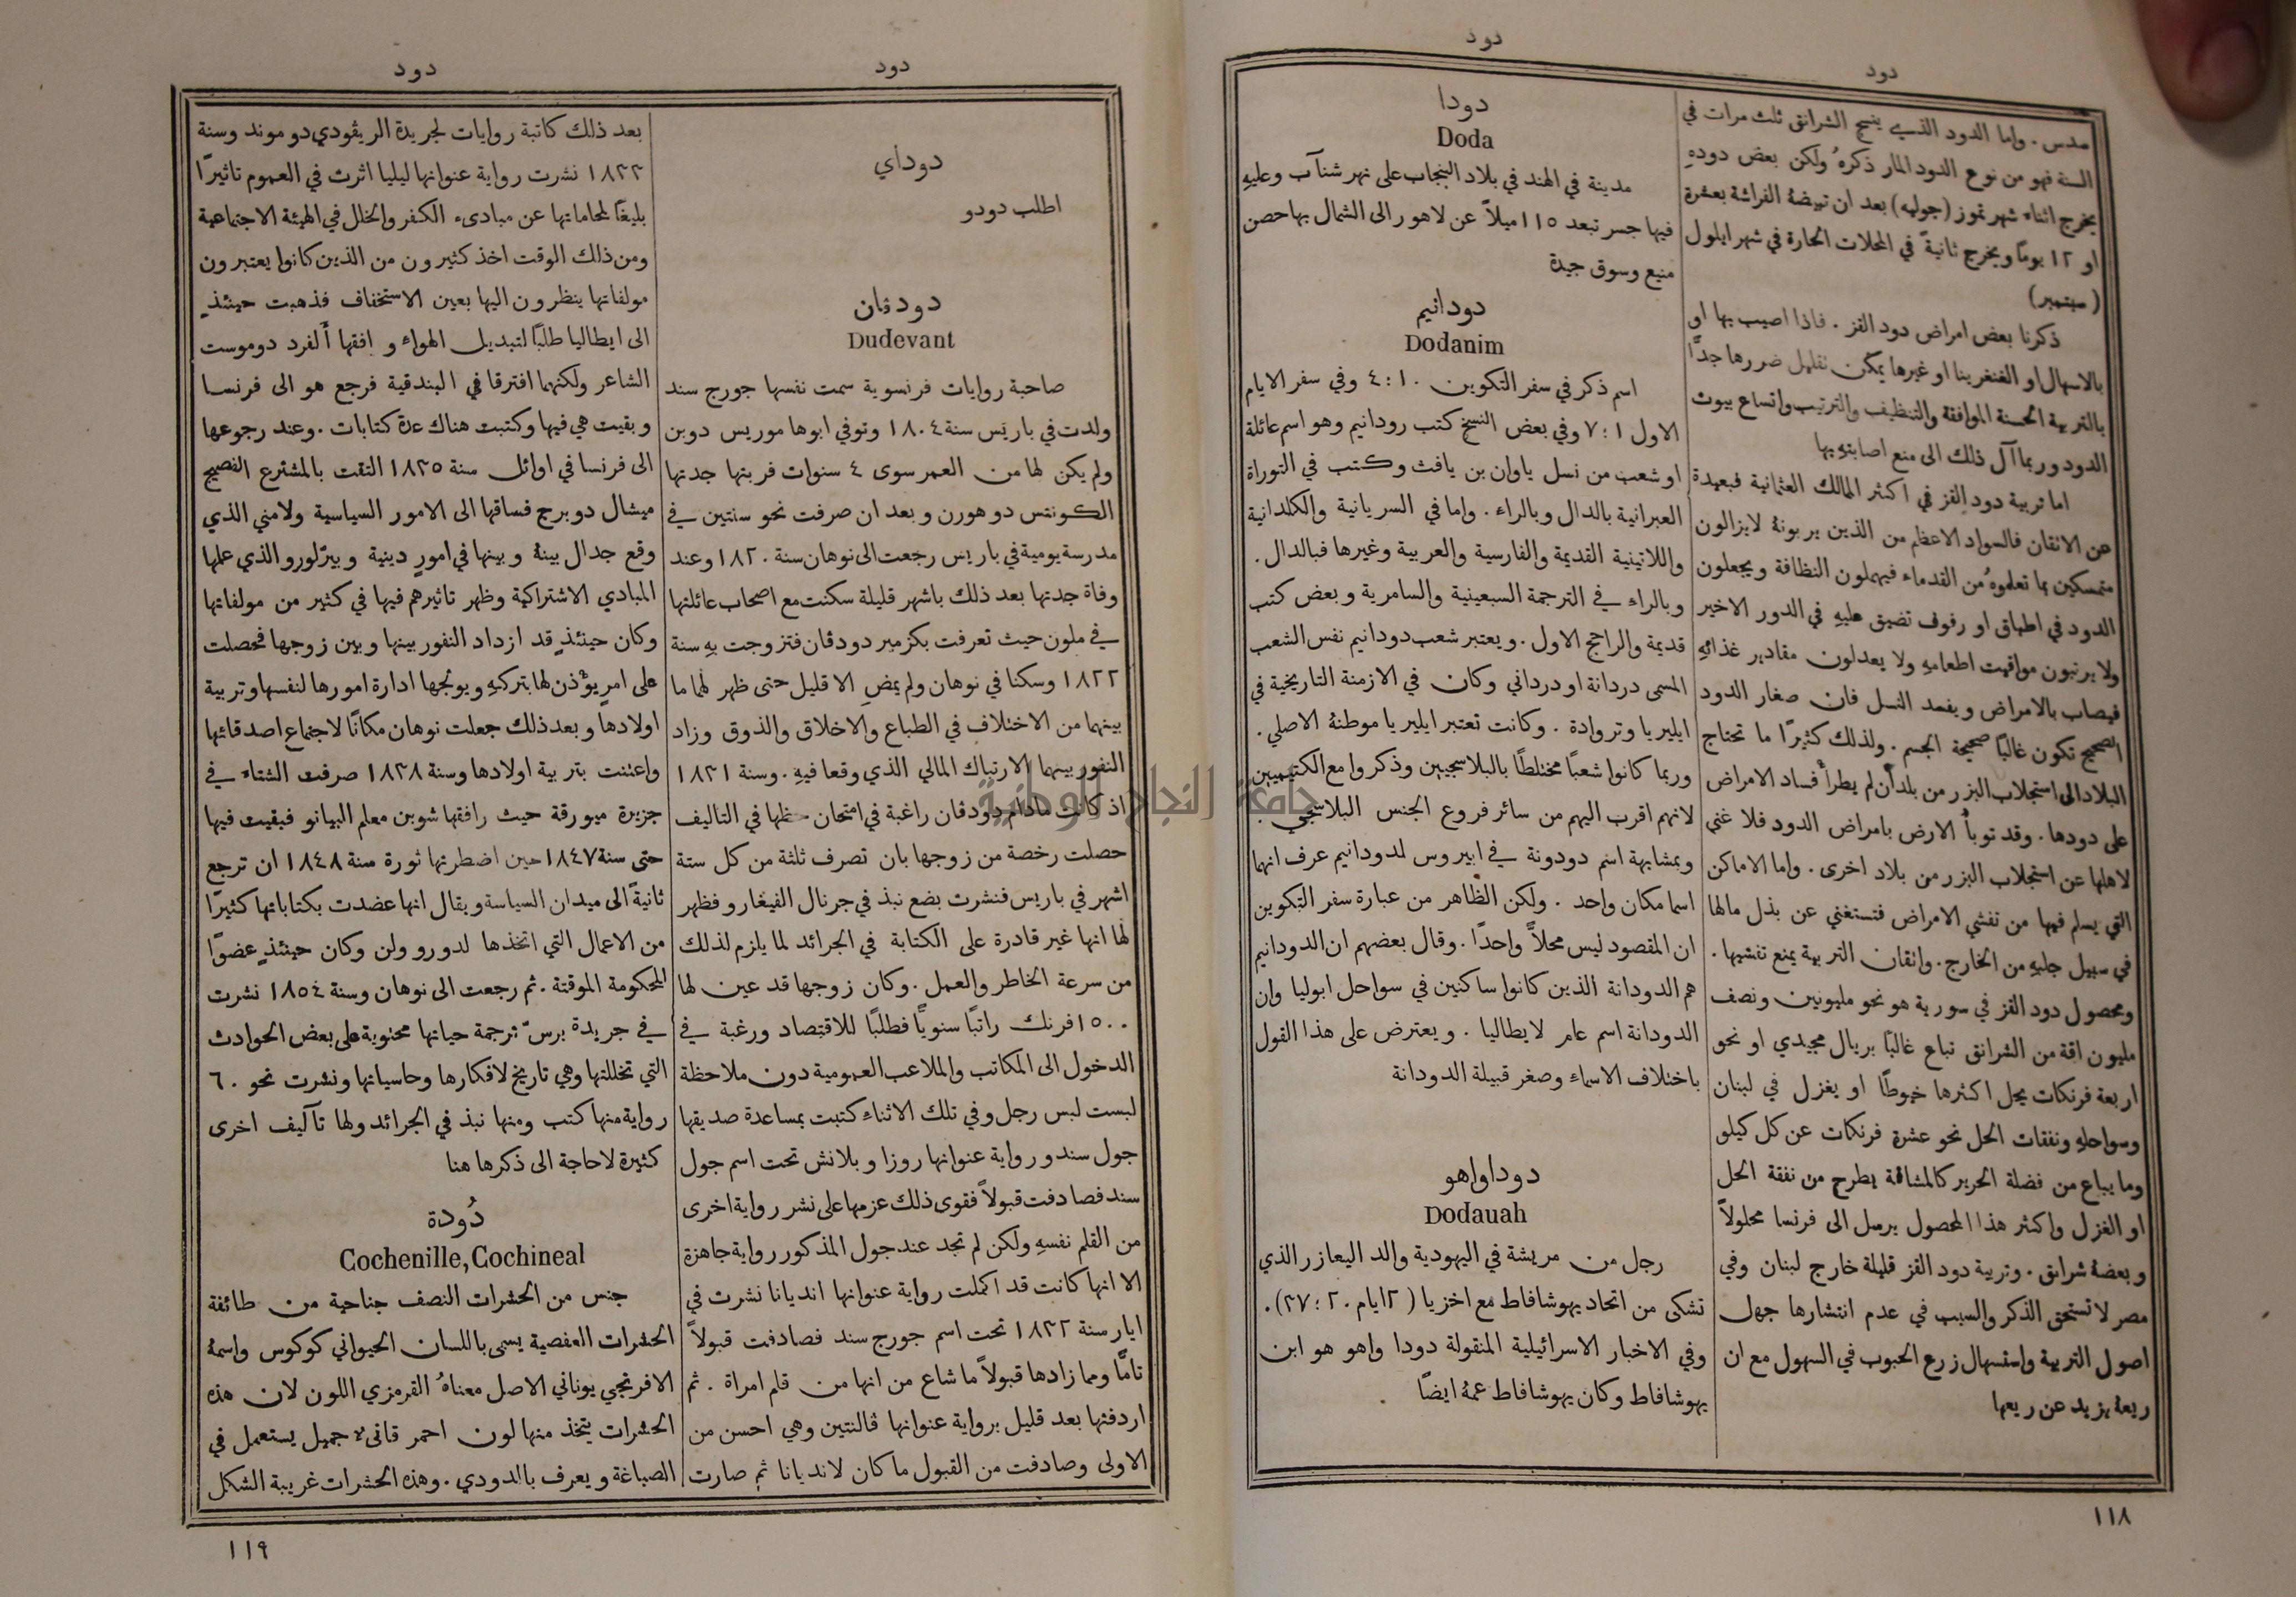 دود
دود
مسدس . واما الدود الذي ينسج الشرانق ثلث مرات في
السنة فهو من نوع الدود المار ذكرهُ ولكن بعض دودهِ
يخرج اثناء شهر تموز (جوليه) بعد ان تبيضهُ الفراشة بعشرة
او ١٢ يومًا ويخرج ثانيةً في المحلات الحارة في شهر ايلول
(سبتمبر)
ذكرنا بعض امراض دود القز . فاذا اصيب بها او
بالاسهال او الغنغرينا او غيرها يمكن تقليل ضررها جدًّا
بالتربية الحسنة الموافقة والتنظيف والترتيب واتساع بيوت
الدود وربما آل ذلك الى منع اصابتهِ بها
اما تربية دود القز في اكثر الممالك العثمانية فبعيدة
عن الاتقان فالسواد الاعظم من الذين يربونهُ لا يزالون
متمسكين بما تعلموهُ من القدماء فيهملون النظافة ويجعلون
الدود في اطباق او رفوف تضيق عليهِ في الدور الاخير
ولا يرتبون مواقيت اطعامهِ ولا يعدلون مقادير غذائهِ
فيصاب بالامراض ويفسد النسل فان صغار الدود
الصحيح تكون غالبًا صحيحة الجسم . ولذلك كثيرًا ما تحتاج
البلاد الى استجلاب البزر من بلدان لم يطرأ فساد الامراض
على دودها . وقد توبأ الارض بامراض الدود فلا غنى
لاهلها عن استجلاب البزر من بلاد اخرى . واما الاماكن
التي يسلم فيها من تفشي الامراض فتستغني عن بذل مالها
في سبيل جلبهِ من الخارج . واتقان التربية يمنع تفشيها .
ومحصول دود القز في سورية هو نحو مليونين ونصف
مليون اقة من الشرانق تباع غالبًا بريال مجيدي او نحو
اربعة فرنكات يحل اكثرها خيوطًا او يغزل في لبنان
وسواحلهِ ونفقات الحل نحو عشرة فرنكات عن كل كيلو
وما يباع من فضلة الحرير كالمشاقة يطرح من نفقة الحل
او الغزل واكثر هذا المحصول يرسل الى فرنسا محلولاً
وبعضهُ شرانق . وتربية دود القز قليلة خارج لبنان وفي
مصر لا تستحق الذكر والسبب في عدم انتشارها جهل
اصول التربية واستسهال زرع الحبوب في السهول مع ان
ريعهُ يزيد عن ريعها
دودا
Doda
مدينة في الهند في بلاد البنجاب على نهر شنآب وعليهِ
فيها جسر تبعد ١١٥ ميلاً عن لاهور الى الشمال بها حصن
منيع وسوق جيدة
دودانيم
Dodanim
اسم ذكر في سفر التكوين ١٠ : ٤ وفي سفر الايام
الاول ١ : ٧ وفي بعض النسخ كتب رودانيم وهو اسم عائلة
او شعب من نسل ياوان بن يافث وكتب في التوراة
العبرانية بالدال وبالراء . واما في السريانية والكلدانية
واللاتينية القديمة والفارسية والعربية وغيرها فبالدال .
وبالراء في الترجمة السبعينية والسامرية وبعض كتب
قديمة والراجح الاول . ويعتبر شعب دودانيم نفس الشعب
المسمى دردانة او درداني وكان في الازمنة التاريخية في
ايليريا وتروادة . وكانت تعتبر ايليريا موطنهُ الاصلي .
وربما كانوا شعبًا مختلطًا بالبلاسجيين وذكروا مع الكتيميين
لانهم اقرب اليهم من سائر فروع الجنس البلاسجي .
وبمشابهة اسم دودونة في ابيروس لدودانيم عرف انهما
اسما مكان واحد . ولكن الظاهر من عبارة سفر التكوين
ان المقصود ليس محلاً واحدًا . وقال بعضهم ان الدودانيم
هم الدودانة الذين كانوا ساكنين في سواحل ابوليا وان
الدودانة اسم عام لايطاليا . ويعترض على هذا القول
باختلاف الاسماء وصغر قبيلة الدودانة
دوداواهو
Dodauah
رجل من مريشة في اليهودية والد اليعازر الذي
تشكى من اتحاد يهوشافاط مع اخزيا ( ٢ ايام ٢٠ : ٣٧ ) .
وفي الاخبار الاسرائيلية المنقولة دودا واهو هو ابن
يهوشافاط وكان يهوشافاط عمهُ ايضًا
١١٨
دود
دود
دوداي
اطلب دودو
دودڤان
Dudevant
صاحبة روايات فرنسوية سمت نفسها جورج سند
ولدت في باريس سنة ١٨٠٤ وتوفي ابوها موريس دوبن
ولم يكن لها من العمر سوى ٤ سنوات فربتها جدتها
الكونتس دو هورن وبعد ان صرفت نحو سنتين في
مدرسة يومية في باريس رجعت الى نوهان سنة ١٨٢٠ وعند
وفاة جدتها بعد ذلك باشهر قليلة سكنت مع اصحاب عائلتها
في ملون حيث تعرفت بكزمير دودڤان فتزوجت بهِ سنة
١٨٢٢ وسكنا في نوهان ولم يمضِ الا قليل حتى ظهر لهما ما
بينهما من الاختلاف في الطباع والاخلاق والذوق وزاد
النفور بينهما الارتباك المالي الذي وقعا فيهِ . وسنة ١٨٣١
اذ كانت مادام دودڤان راغبة في امتحان حظها في التاليف
حصلت رخصة من زوجها بان تصرف ثلثة من كل ستة
اشهر في باريس فنشرت بضع نبذ في جرنال الفيغارو فظهر
لها انها غير قادرة على الكتابة في الجرائد لما يلزم لذلك
من سرعة الخاطر والعمل . وكان زوجها قد عين لها
١٥٠٠ فرنك راتبًا سنويًّا فطلبًا للاقتصاد ورغبة في
الدخول الى المكاتب والملاعب العمومية دون ملاحظة
لبست لبس رجل وفي تلك الاثناء كتبت بمساعدة صديقها
جول سندو رواية عنوانها روزا وبلانش تحت اسم جول
سند فصادفت قبولاً فقوى ذلك عزمها على نشر رواية اخرى
من القلم نفسهِ ولكن لم تجد عند جول المذكور رواية جاهزة
الا انها كانت قد اكملت رواية عنوانها انديانا نشرت في
ايار سنة ١٨٣٢ تحت اسم جورج سند فصادفت قبولاً
تامًّا ومما زادها قبولاً ما شاع من انها من قلم امراة . ثم
اردفتها بعد قليل برواية عنوانها ڤالنتين وهي احسن من
الاولى وصادفت من القبول ما كان لانديانا ثم صارت
بعد ذلك كاتبة روايات لجريدة الريڤودي دو موند وسنة
١٨٣٣ نشرت رواية عنوانها ليليا اثرت في العموم تاثيرًا
بليغًا لمحاماتها عن مبادىء الكفر والخلل في الهيئة الاجتماعية
ومن ذلك الوقت اخذ كثيرون من الذين كانوا يعتبرون
مولفاتها ينظرون اليها بعين الاستخفاف فذهبت حينئذٍ
الى ايطاليا طلبًا لتبديل الهواء ورافقها ألفرد دوموست
الشاعر ولكنهما افترقا في البندقية فرجع هو الى فرنسا
وبقيت هي فيها وكتبت هناك عدة كتابات . وعند رجوعها
الى فرنسا في اوائل سنة ١٨٣٥ التقت بالمشترع الفصيح
ميشال دو برج فساقها الى الامور السياسية ولامني الذي
وقع جدال بينهُ وبينها في امورٍ دينية وبيرّ لورو الذي علمها
المبادي الاشتراكية وظهر تاثيرهم فيها في كثير من مولفاتها
وكان حينئذٍ قد ازداد النفور بينها وبين زوجها فحصلت
على امرٍ يؤذن لها بتركهِ ويولجها ادارة امورها لنفسها وتربية
اولادها وبعد ذلك جعلت نوهان مكانًا لاجتماع اصدقائها
واعتنت بتربية اولادها وسنة ١٨٣٨ صرفت الشتاء في
جزيرة ميورقة حيث رافقها شوبن معلم البيانو فبقيت فيها
حتى سنة ١٨٤٧ حين اضطرتها ثورة سنة ١٨٤٨ ان ترجع
ثانيةً الى ميدان السياسة ويقال انها عضدت بكتاباتها كثيرًا
من الاعمال التي اتخذها لدورو ولن وكان حينئذٍ عضوًا
للحكومة الموقتة . ثم رجعت الى نوهان وسنة ١٨٥٤ نشرت
في جريدة برسّ ترجمة حياتها محتوية على بعض الحوادث
التي تخللتها وهي تاريخ لافكارها وحاسياتها ونشرت نحو ٦٠
رواية منها كتب ومنها نبذ في الجرائد ولها تآليف اخرى
كثيرة لا حاجة الى ذكرها هنا
دُودة
Cochenille, Cochineal
جنس من الحشرات النصف جناحية من طائفة
الحشرات العفصية يسمى باللسان الحيواني كوكوس واسمهُ
الافرنجي يوناني الاصل معناهُ القرمزي اللون لان هذه
الحشرات يتخذ منها لون احمر قانىء جميل يستعمل في
الصباغة ويعرف بالدودي . وهذه الحشرات غريبة الشكل
١١٩
جامعة النجاح الوطنية